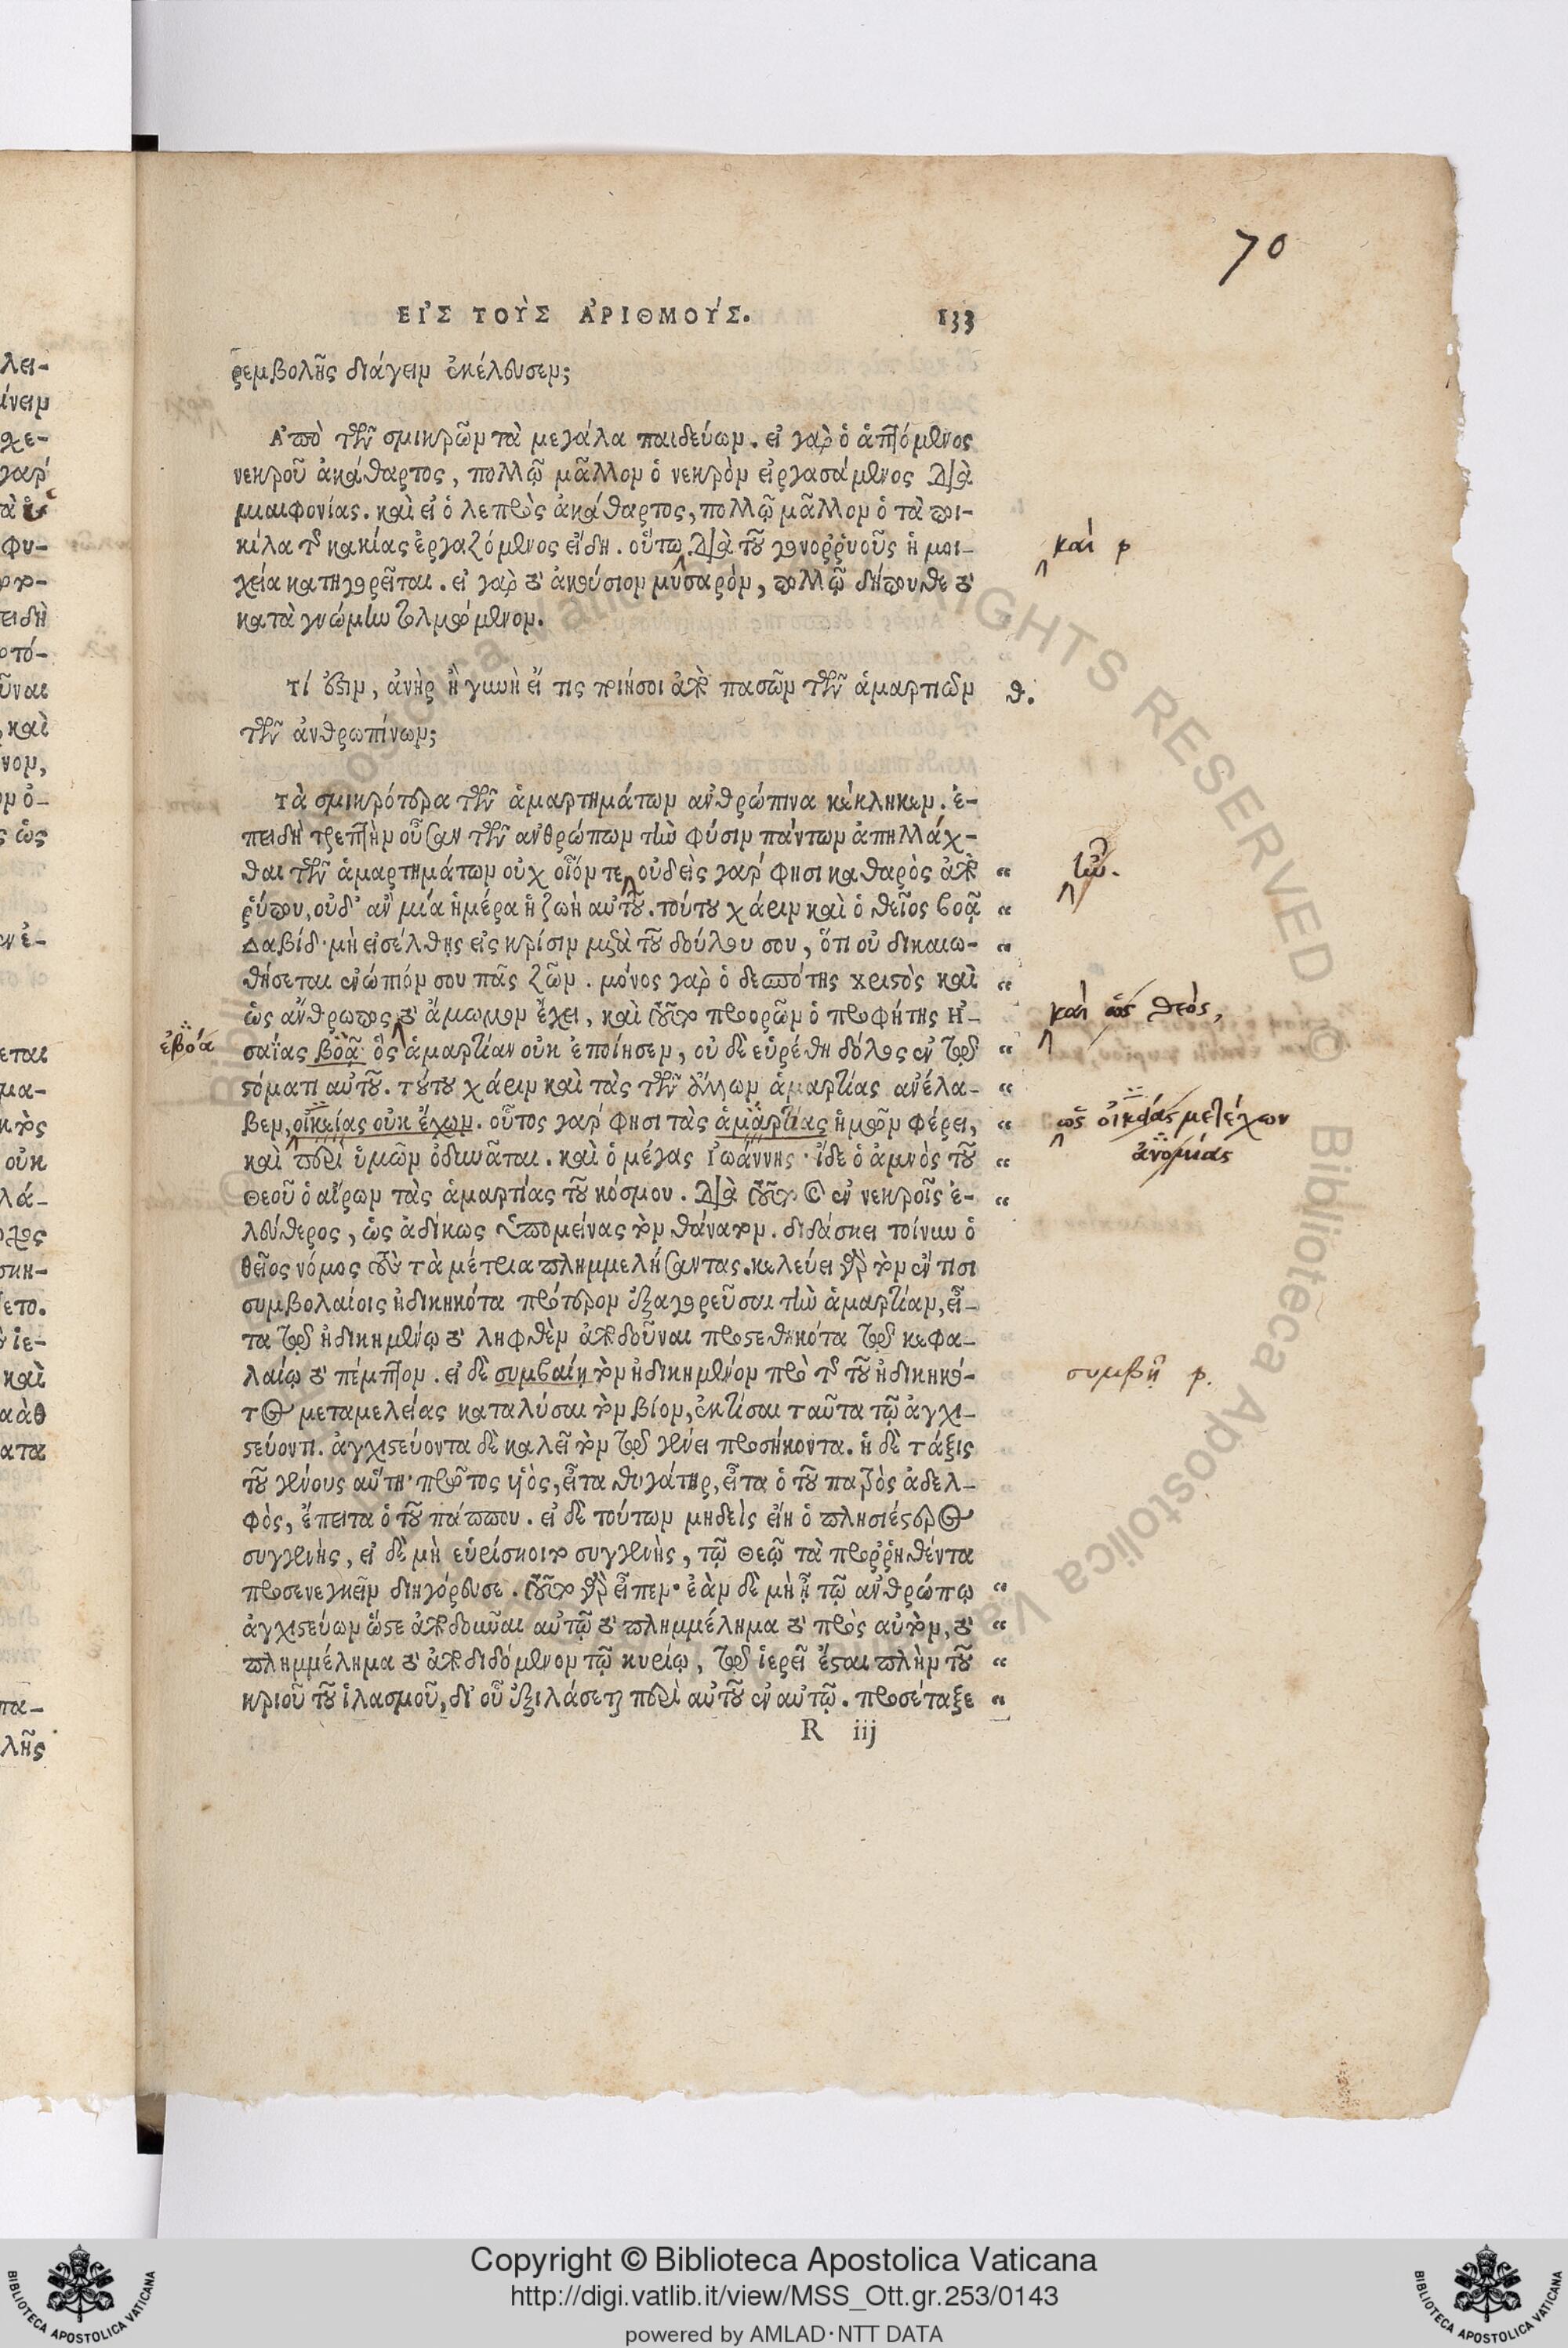 70
ΕἸΣ ΤΟῪΣ ἈΡΙΘΜΟΎΣ. 133
ρεμβολῆς διάγειν ἐκέλευσεν;
Ἀπὸ τῶν σμικρῶν τὰ μεγάλα παιδεύων. εἰ γὰρ ὁ ἁπτόμενος
νεκροῦ ἀκάθαρτος, πολλῷ μᾶλλον ὁ νεκρὸν εἰργασάμενος διὰ
μιαιφονίας. καὶ εἰ ὁ λεπρὸς ἀκάθαρτος, πολλῷ μᾶλλον ὁ τὰ ποι-
κίλα τῆς κακίας ἐργαζόμενος εἴδη. οὕτω διὰ τοῦ γονοῤῥυοῦς ἡ μοι-
καὶ ρ
χεία κατηγορεῖται. εἰ γὰρ τὸ ἀκούσιον μυσαρὸν, πολλῷ δήπουθε τὸ
κατὰ γνώμην τολμώμενον.
τί ἐστιν, ἀνὴρ ἢ γυνὴ εἴ τις ποιήσοι ἀπὸ πασῶν τῶν ἁμαρτιῶν θ.
τῶν ἀνθρωπίνων;
τὰ σμικρότερα τῶν ἁμαρτημάτων ἀνθρώπινα κέκληκεν. ἐ-
πειδὴ τρεπτὴν οὖσαν τῶν ἀνθρώπων τὴν φύσιν πάντων ἀπηλλάχ-
θαι τῶν ἁμαρτημάτων οὐχ οἷόν τε, οὐδεὶς γάρ φησι καθαρὸς ἀπὸ “
ῥύπου, οὐδ' ἂν μία ἡμέρα ἡ ζωὴ αὐτοῦ. τούτου χάριν καὶ ὁ θεῖος βοᾷ “
Δαβίδ· μὴ εἰσέλθῃς εἰς κρίσιν μετὰ τοῦ δούλου σου, ὅτι οὐ δικαιω- “
θήσεται ἐνώπιόν σου πᾶς ζῶν. μόνος γὰρ ὁ δεσπότης χριστὸς καὶ “
καὶ ὡς θεὸς,
ὡς ἄνθρωπος τὸ ἄμωμον ἔχει, καὶ τοῦτο προορῶν ὁ προφήτης Ἠ-
ἐβόα
σαΐας βοᾷ· ὃς ἁμαρτίαν οὐκ ἐποίησεν, οὐ δὲ εὑρέθη δόλος ἐν τῷ “
στόματι αὐτοῦ. τούτου χάριν καὶ τὰς τῶν ἄλλων ἁμαρτίας ἀνέλα- “
βεν, οἰκείας οὐκ ἔχων. οὗτος γάρ φησι τὰς ἁμαρτίας ἡμῶν φέρει, “
ὡς οἰκείας μετέχων
ἀνομίας
καὶ περὶ ὑμῶν ὀδυνᾶται. καὶ ὁ μέγας Ἰωάννης· ἴδε ὁ ἀμνὸς τοῦ “
Θεοῦ ὁ αἴρων τὰς ἁμαρτίας τοῦ κόσμου. διὰ τοῦτο καὶ ἐν νεκροῖς ἐ- “
λεύθερος, ὡς ἀδίκως ὑπομείνας τὸν θάνατον. διδάσκει τοίνυν ὁ
θεῖος νόμος τοὺς τὰ μέτρια πλημμελήσαντας. κελεύει γὰρ τὸν ἐν τισι
συμβολαίοις ἠδικηκότα πρότερον ἐξαγορεῦσαι τὴν ἁμαρτίαν, εἶ-
τα τῷ ἠδικημένῳ τὸ ληφθὲν ἀποδοῦναι προστεθηκότα τῷ κεφα-
λαίῳ τὸ πέμπτον. εἰ δὲ συμβαίη τὸν ἠδικημένον πρὸ τῆς τοῦ ἠδικηκό-
συμβῇ ρ.
τος μεταμελείας καταλύσαι τὸν βίον, ἐκτίσαι ταῦτα τῷ ἀγχι-
στεύοντι. ἀγχιστεύοντα δὲ καλεῖ τὸν τῷ γένει προσήκοντα. ἡ δὲ τάξις
τοῦ γένους αὕτη· πρῶτος υἱὸς, εἶτα θυγάτηρ, εἶτα ὁ τοῦ πατρὸς ἀδελ-
φὸς, ἔπειτα ὁ τοῦ πάππου. εἰ δὲ τούτων μηδεὶς εἴη ὁ πλησιέστερος
συγγενὴς, εἰ δὲ μὴ εὑρίσκοιτο συγγενὴς, τῷ Θεῷ τὰ προῤῥηθέντα
προσενεγκεῖν διηγόρευσε. τοῦτο γὰρ εἶπεν· ἐὰν δὲ μὴ ᾖ τῷ ἀνθρώπῳ “
ἀγχιστεύων ὥστε ἀποδοῦναι αὐτῷ τὸ πλημμέλημα τὸ πρὸς αὐτὸν, τὸ “
πλημμέλημα τὸ ἀποδιδόμενον τῷ κυρίῳ, τῷ ἱερεῖ ἔσται πλὴν τοῦ “
κριοῦ τοῦ ἱλασμοῦ, δι' οὗ ἐξιλάσεται περὶ αὐτοῦ ἐν αὐτῷ. προσέταξε “
R iij
Copyright © Biblioteca Apostolica Vaticana
http://digi.vatlib.it/view/MSS_Ott.gr.253/0143
powered by AMLAD·NTT DATA